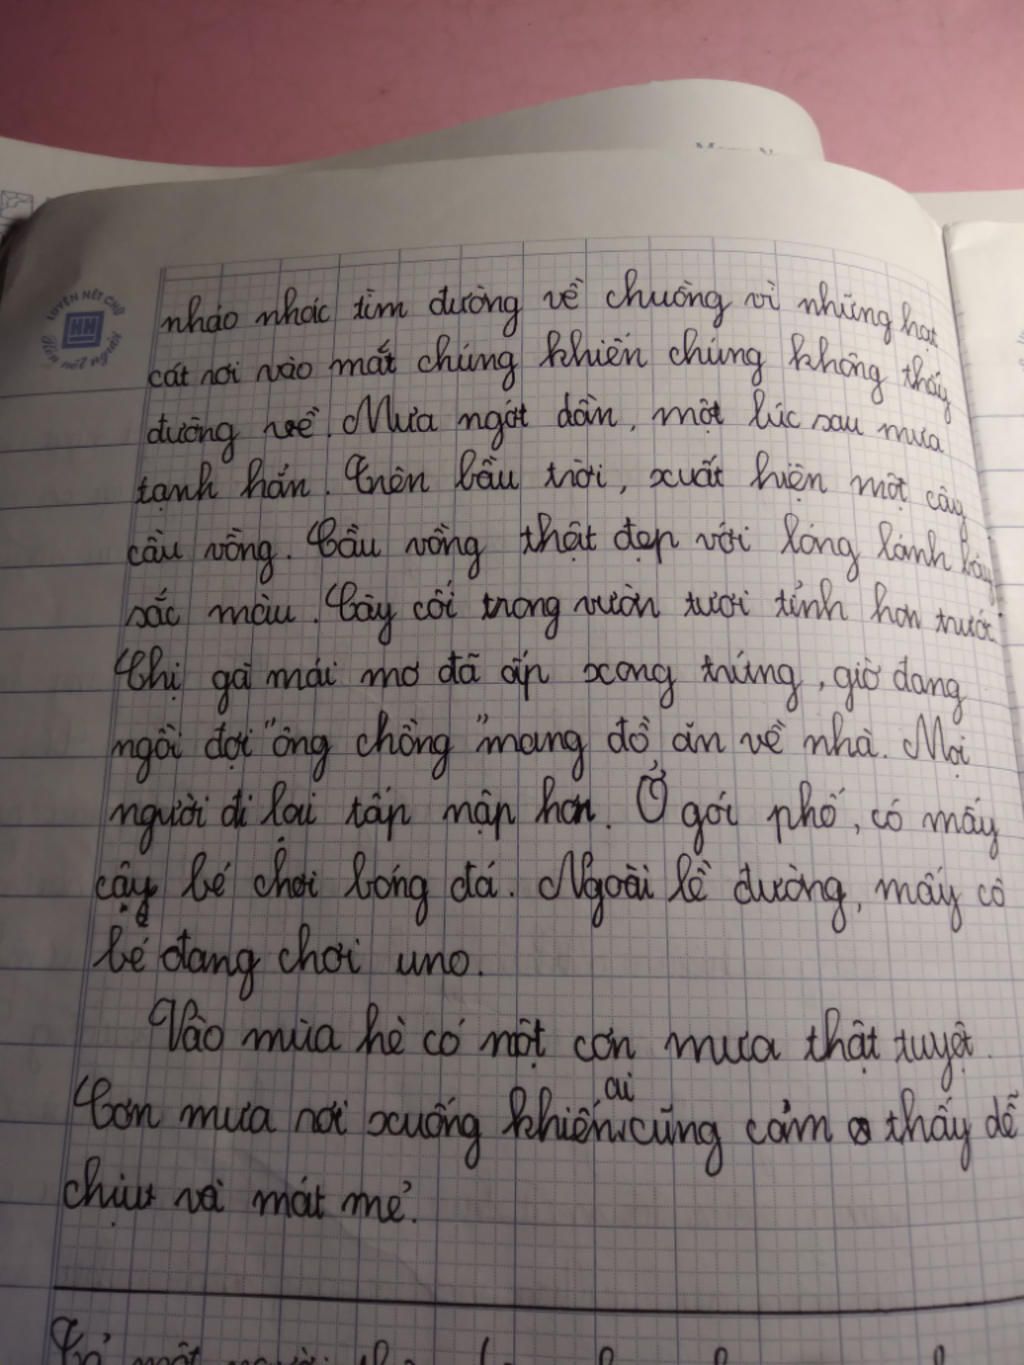 LUYỆN NÉT CHỮ
HH
Rèn nết người
nháo nhác tìm đường về chuồng vì những hạt
cát rơi vào mắt chúng khiến chúng không thấy
đường về. Mưa ngớt dần, một lúc sau mưa
tạnh hẳn. Trên bầu trời, xuất hiện một cây
cầu vồng. Cầu vồng thật đẹp với lóng lánh bảy
sắc màu. Cây cối trong vườn tươi tỉnh hơn trước.
Chị gà mái mơ đã ấp xong trứng, giờ đang
ngồi đợi "ông chồng" mang đồ ăn về nhà. Mọi
người đi lại tấp nập hơn. Ở gói phố, có mấy
cậy bé chơi bóng đá. Ngoài lề đường, mấy cô
bé đang chơi uno.
Vào mùa hè có một cơn mưa thật tuyệt.
Cơn mưa rơi xuống khiến ai cũng cảm thấy dễ
chịu và mát mẻ.
một